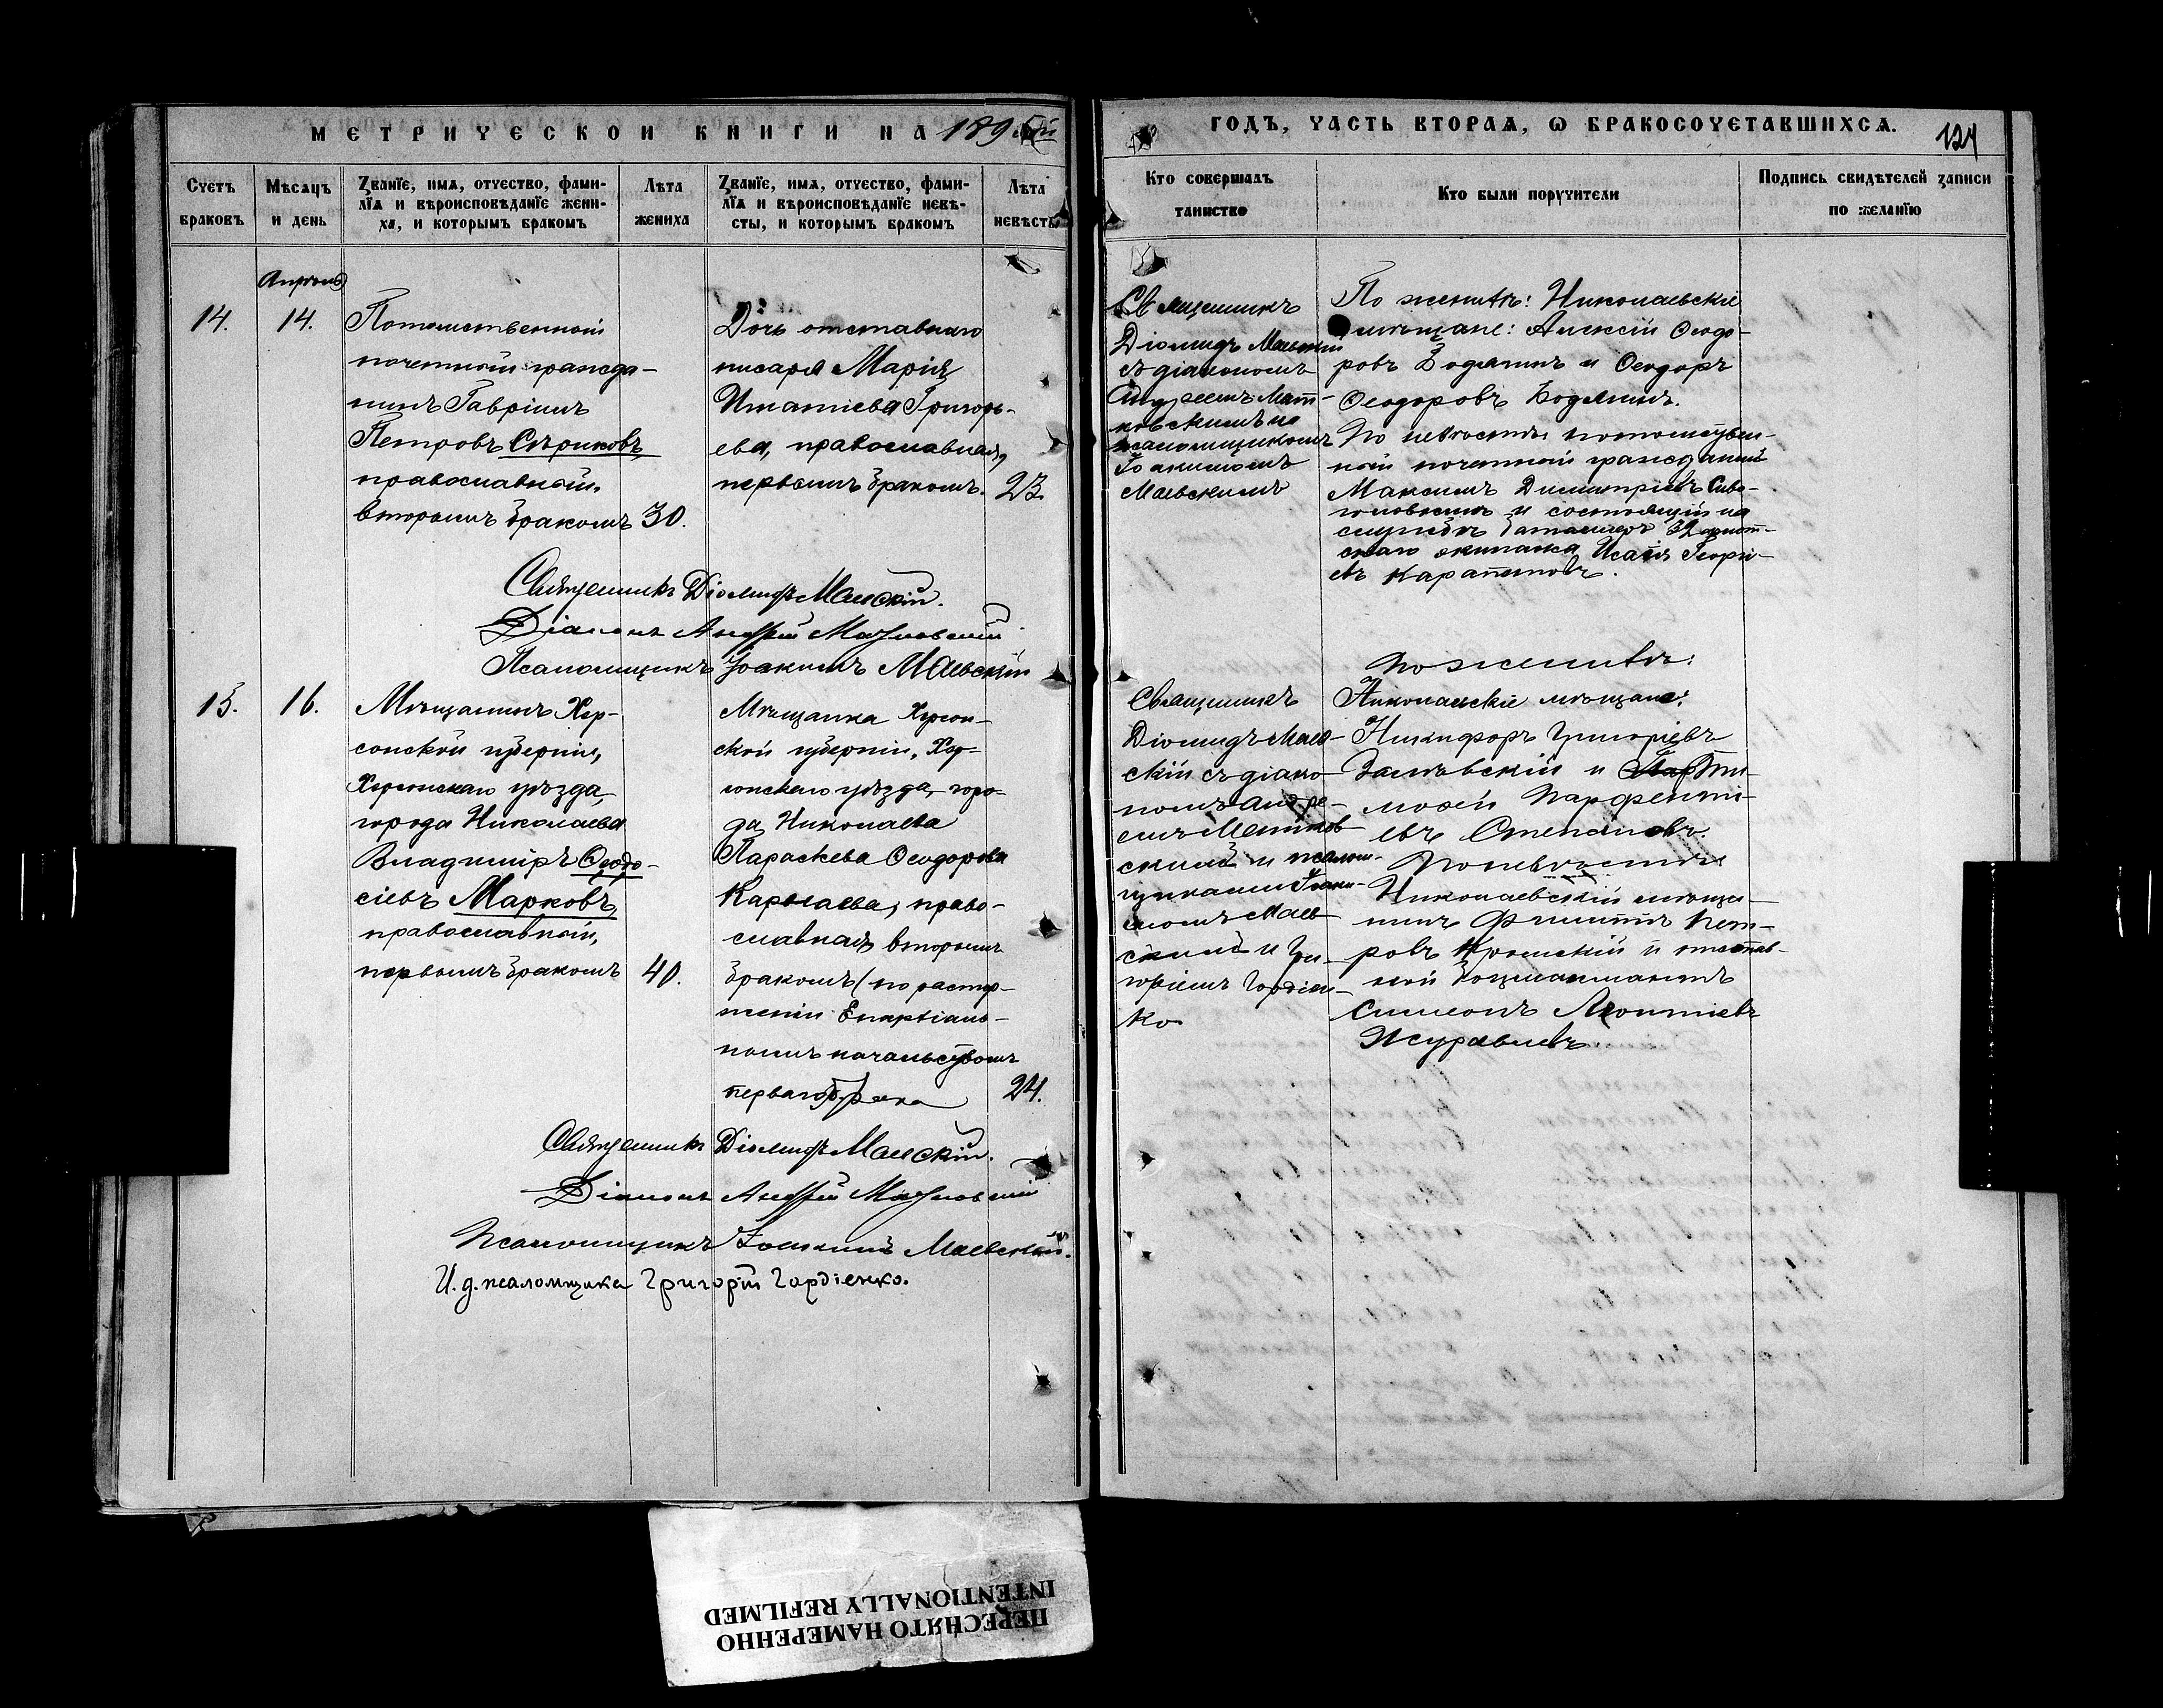 МЕТРИЧЕСКОИ КНИГИ НА 189
ГОДЪ, ЧАСТЬ ВТОРАЯ, Ѡ БРАКОСОЧЕТАВШИХСЯ.
124
Счетъ браковъ
Мѣсяцъ и день
Званїе, имя, отчество, фами-
лїя и вѣроисповѣданїе жени-
ха, и которымъ бракомъ
Лѣта жениха
Званїе, имя, отчество, фами-
лїя и вѣроисповѣданїе невѣ-
сты, и которымъ бракомъ
Лѣта невѣсты
Кто совершалъ
таинство
Кто были поручители
Подпись свидѣтелей записи
по желанїю
Апрѣль
14.
14.
Потомственный
почетный гражда-
нинъ Гавріилъ
Петровъ Стриковъ,
православный,
вторымъ бракомъ
30.
Дочь отставнаго
писаря Марія
Игнатіева Григорь-
ева, православная,
первымъ бракомъ.
23.
Священникъ
Діомидъ Маевскій
съ діакономъ
Андреемъ
псаломщикомъ
Іоакимомъ
Маевскимъ
По женихѣ: Николаевскіе
мѣщане: Алексій Ѳеодо-
ровъ Бодянинъ и Ѳеодоръ
Ѳеодоровъ
По невѣстѣ потомствен-
ный почетный гражданинъ
Максимъ Димитріевъ
и состоящій на
службѣ баталеръ 32 флот-
скаго экипажа Исаія Георгі-
евъ Карапетовъ.
Священникъ Діомидъ Маевскій.
Діаконъ Андрей
Псаломщикъ Іоакимъ Маевскій
15.
16.
Мѣщанинъ Хер-
сонской губерніи,
Херсонскаго уѣзда,
города Николаева
Владиміръ Ѳеодо-
сіевъ Марковъ,
православный,
первымъ бракомъ
40.
Мѣщанка Херсон-
ской губерніи, Хер-
сонскаго уѣзда, горо-
да Николаева
Параскева Ѳеодорова
Карпаева, право-
славная, вторымъ
бракомъ (по растор-
женіи Епархіаль-
нымъ начальствомъ
перваго брака
24.
Священникъ
Діомидъ Маев-
скій съ діако-
номъ Андре-
емъ
скимъ и псалом-
щиками Іоаки-
момъ Маев-
скимъ и Гри-
горіемъ Гордіен-
ко
По женихѣ:
Николаевскіе мѣщане:
Никифоръ Григоріевъ
Залѣвскій и Ти-
моѳей Парфенті-
евъ Степановъ.
По невѣстѣ:
Николаевскій мѣща-
нинъ Филиппъ Пет-
ровъ Крымскій и отстав-
ной боцманматъ
Симеонъ Леонтіевъ
Журавлевъ.
Священникъ Діомидъ Маевскій.
Діаконъ Андрей
Псаломщикъ Іоакимъ Маевскій.
И. д. псаломщика Григорій Гордіенко.
ПЕРЕСНЯТО НАМЕРЕННО
INTENTIONALLY REFILMED